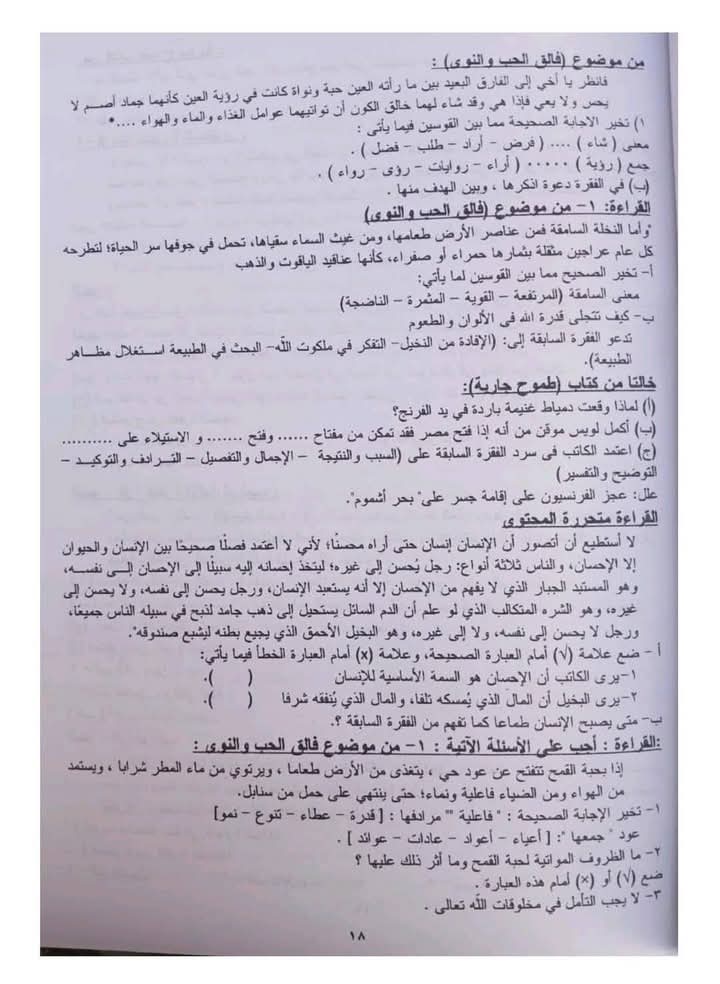 من موضوع (فالق الحب والنوى) :
فانظر يا أخي إلى الفارق البعيد بين ما رأته العين حبة ونواة كانت في رؤية العين كأنهما جماد أصم لا
يحس ولا يعي فإذا هي وقد شاء لهما خالق الكون أن تواتيهما عوامل الغذاء والماء والهواء ....*
١) تخير الاجابة الصحيحة مما بين القوسين فيما يأتى :
معنى ( شاء ) .... ( فرض – أراد – طلب – فضل ) .
جمع ( رؤية ) ..... ( أراء – روايات – رؤى – رواء ) .
(ب) في الفقرة دعوة اذكرها ، وبين الهدف منها .
القراءة: ١- من موضوع (فالق الحب والنوى)
"وأما النخلة السامقة فمن عناصر الأرض طعامها، ومن غيث السماء سقياها، تحمل في جوفها سر الحياة؛ لتطرحه
كل عام عراجين مثقلة بثمارها حمراء أو صفراء، كأنها عناقيد الياقوت والذهب
أ- تخير الصحيح مما بين القوسين لما يأتي:
معنى السامقة (المرتفعة – القوية – المثمرة – الناضجة)
ب- كيف تتجلى قدرة الله فى الألوان والطعوم
تدعو الفقرة السابقة إلى: (الإفادة من النخيل- التفكر في ملكوت الله- البحث في الطبيعة استغلال مظاهر
الطبيعة).
خالتا من كتاب (طموح جارية):
(أ) لماذا وقعت دمياط غنيمة باردة في يد الفرنج؟
(ب) أكمل لويس موقن من أنه إذا فتح مصر فقد تمكن من مفتاح ...... وفتح ....... و الاستيلاء على ..........
(ج) اعتمد الكاتب فى سرد الفقرة السابقة على (السبب والنتيجة – الإجمال والتفصيل – الترادف والتوكيد –
التوضيح والتفسير)
علل: عجز الفرنسيون على إقامة جسر على" بحر أشموم".
القراءة متحررة المحتوى
لا أستطيع أن أتصور أن الإنسان إنسان حتى أراه محسنًا؛ لأني لا أعتمد فصلًا صحيحًا بين الإنسان والحيوان
إلا الإحسان، والناس ثلاثة أنواع: رجل يُحسن إلى غيره؛ ليتخذ إحسانه إليه سبيلًا إلى الإحسان إلى نفسه،
وهو المستبد الجبار الذي لا يفهم من الإحسان إلا أنه يستعبد الإنسان، ورجل يحسن إلى نفسه، ولا يحسن إلى
غيره، وهو الشره المتكالب الذي لو علم أن الدم السائل يستحيل إلى ذهب جامد لذبح في سبيله الناس جميعًا،
ورجل لا يحسن إلى نفسه، ولا إلى غيره، وهو البخيل الأحمق الذي يجيع بطنه ليشبع صندوقه".
أ - ضع علامة (√) أمام العبارة الصحيحة، وعلامة (x) أمام العبارة الخطأ فيما يأتي:
١-يرى الكاتب أن الإحسان هو السمة الأساسية للإنسان ( ).
٢-يرى البخيل أن المال الذي يُمسكه تلفا، والمال الذي يُنفقه شرفا ( ).
ب- متى يصبح الإنسان طماعا كما تفهم من الفقرة السابقة ؟.
:القراءة : أجب على الأسئلة الآتية : ١- من موضوع فالق الحب والنوى :
إذا بحبة القمح تتفتح عن عود حي ، يتغذى من الأرض طعاما ، ويرتوي من ماء المطر شرابا ، ويستمد
من الهواء ومن الضياء فاعلية ونماء؛ حتى ينتهي على حمل من سنابل.
١- تخير الإجابة الصحيحة : " فاعلية "" مرادفها : [ قدرة – عطاء – تنوع – نمو]
عود " جمعها ": [ أعياء – أعواد – عادات – عوائد ] .
٢- ما الظروف المواتية لحبة القمح وما أثر ذلك عليها ؟
ضع (√) أو (×) أمام هذه العبارة .
٣- لا يجب التأمل في مخلوقات الله تعالى .
١٨